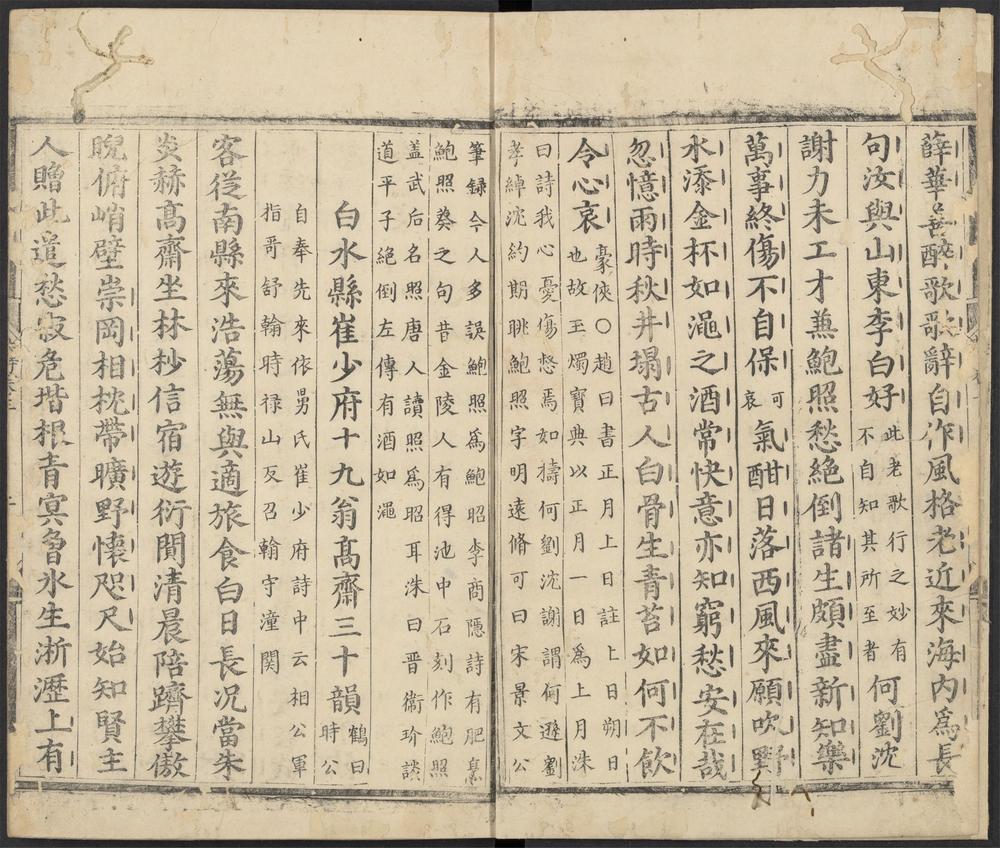 薛華善醉歌歌辭自作風格老近來海内爲長
句汝與山東李白好
此老歌行之妙有
不自知其所至者
何劉沈
謝力未工才兼鮑照愁絕倒諸生頗盡新知樂
萬事終傷不自保
可
哀
氣酣日落西風來願吹野
水添金杯如澠之酒常快意亦知窮愁安在哉
忽憶雨時秋井塌古人白骨生青苔如何不飲
令心哀
豪俠〇趙曰書正月上日註上日朔日
也故玉燭寶典以正月一日爲上月洙
曰詩我心憂傷惄焉如擣何劉沈謝謂何遜劉
孝綽沈約眺鮑照字明遠脩可曰宋景文公
筆録今人多誤鮑照爲鮑昭李商隱詩有肥烹
鮑照葵之句昔金陵人有得池中石刻作鮑照
盖武后名照唐人讀照爲昭耳洙曰晋衛玠談
道平子絕倒左傳有酒如澠
白水縣崔少府十九翁髙齋三十韻
鶴曰
時公
自奉先來依舅氏崔少府詩中云相公軍
指哥舒翰時禄山反召翰守潼関
客從南縣來浩蕩無與適旅食白日長况當朱
炎赫髙齋坐林杪信宿遊衍閴清晨陪躋攀傲
睨俯峭壁崇岡相枕帶曠野懷咫尺始知賢主
人贈此遣愁寂危堦根青冥曾冰生淅瀝上有